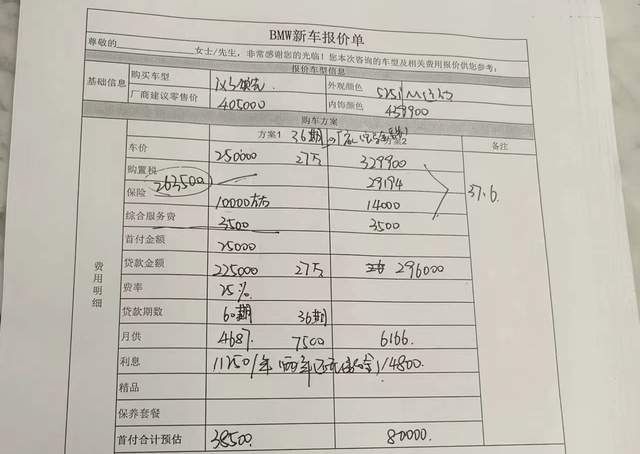 BMW新车报价单
尊敬的 女士/先生，非常感谢您的光临！您本次咨询的车型及相关费用报价供您参考：
报价车型信息
基础信息 购买车型 iX3领先 外观颜色 525i M
厂商建议零售价 405000 内饰颜色 458900
购车方案
方案1 36期 方案2 备注
车价 250000 27万 329900
购置税 29194
263500 37.6
保险 10000左右 14000
综合服务费 3500 3500
首付金额 25000
费用明细
贷款金额 225000 27万 296000
费率 25%
贷款期数 60期 36期
月供 4687 7500 6166
利息 11250/年 14800.
精品
保养套餐
首付合计预估 38500. 80000.